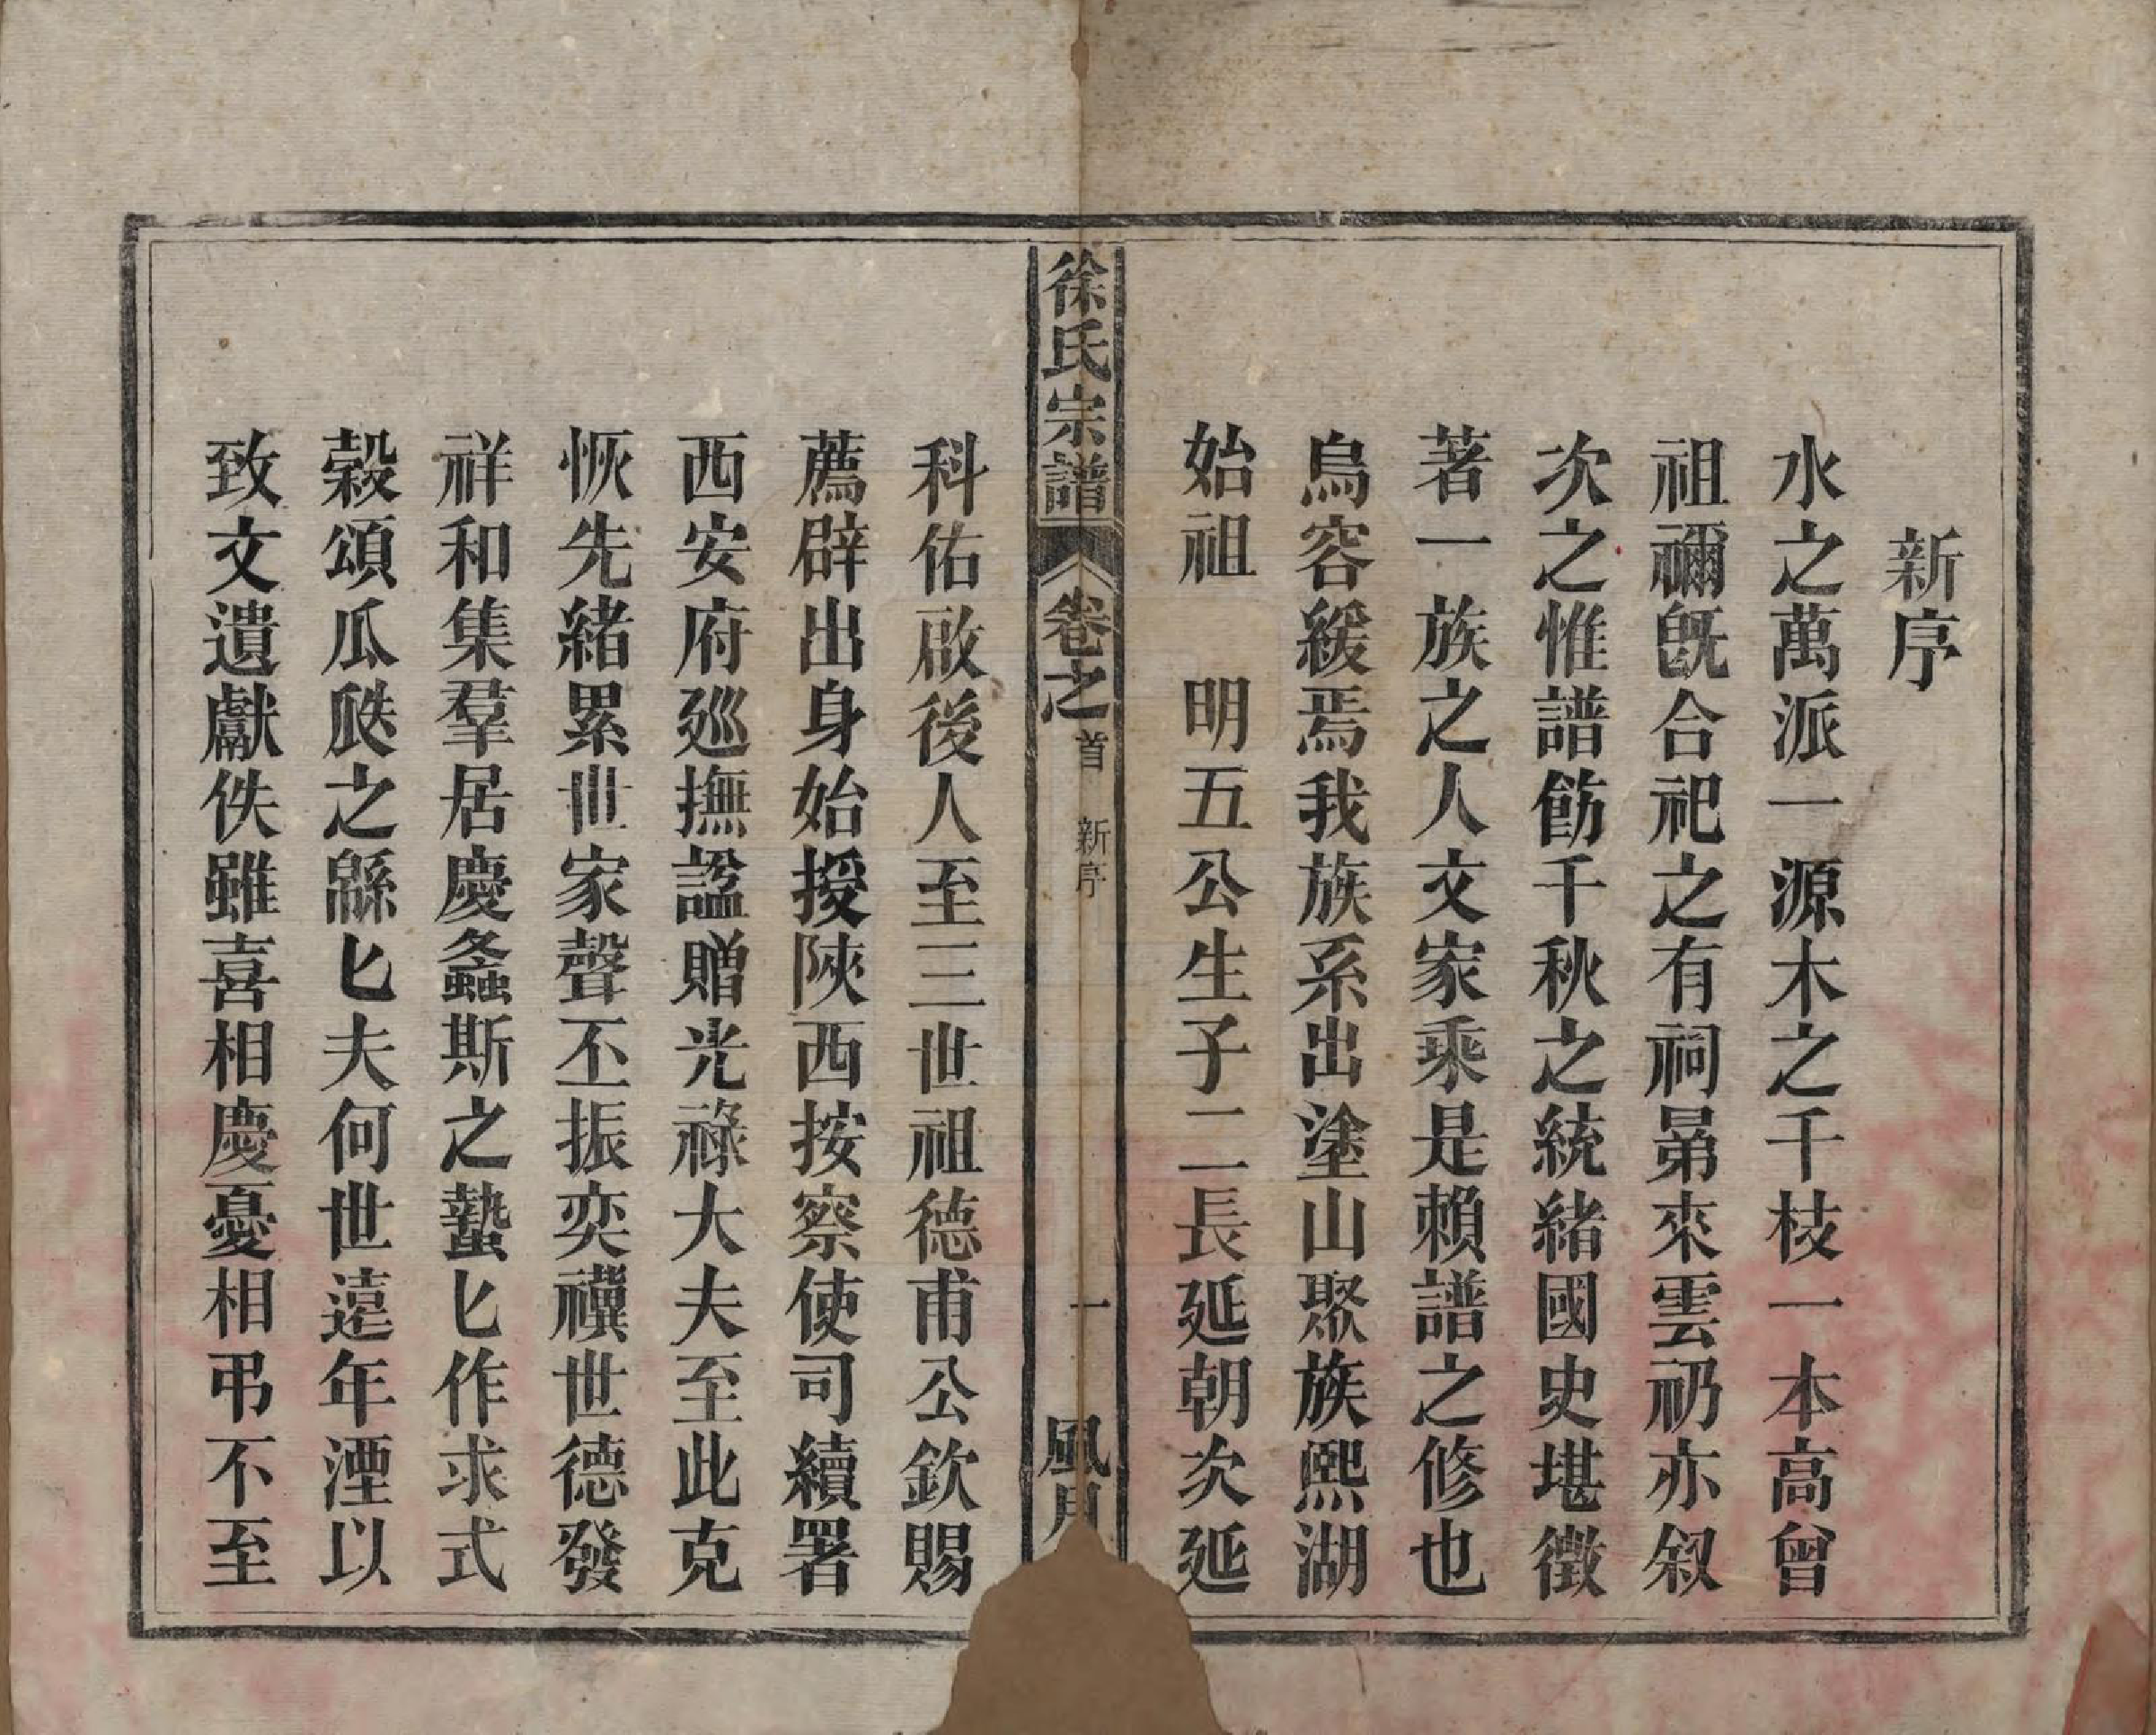 新序
水之萬派一源木之千枝一本高曾
祖禰旣合祀之有祠晜來雲礽亦叙
次之惟譜飭千秋之統緒國史堪徵
著一族之人文家乘是賴譜之修也
烏容緩焉我族系出塗山聚族熙湖
始祖　明五公生子二長延朝次延
徐氏宗譜
卷之首　新序
一
風月
科佑啟後人至三世祖德甫公欽賜
薦辟出身始授陝西按察使司續署
西安府廵撫諡贈光祿大夫至此克
恢先緒累世家聲丕振奕禩世德發
祥和集羣居慶螽斯之蟄匕作求式
榖頌瓜瓞之緜匕夫何世遠年湮以
致文遺獻佚雖喜相慶憂相弔不至